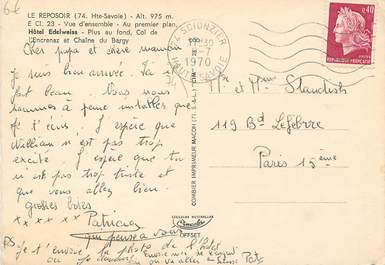 6€
LE REPOSOIR (74. Hte-Savoie) - Alt. 975 m.
E Cl. 23 - Vue d'ensemble - Au premier plan,
Hôtel Edelweiss - Plus au fond, Col de
l'Encrenaz et Chaîne du Bargy
Cher pupa et chère maman
Je suis bien arrivée. Il a
fait beau. Nous nous
sommes à peine installés que
je t'écris. J'espère que
William n'est pas trop
excité. J'espère que tu
n'est pas trop triste et
que vous allez bien.
grosses bises
xx xx xx xx Patricia
qui pense à vous
PS Je t'envoie la photo de l'hôtel
où
74 SCIONZIER
-7
1970
HAUTE-SAVOIE
0,40
REPUBLIQUE FRANÇAISE
Mr et Mme Standish
119 Bd Lefebvre
Paris 15ème
COMBIER IMPRIMEUR MACON (71. S.-&-L.)
COULEURS NATURELLES
Cim
OFFSET